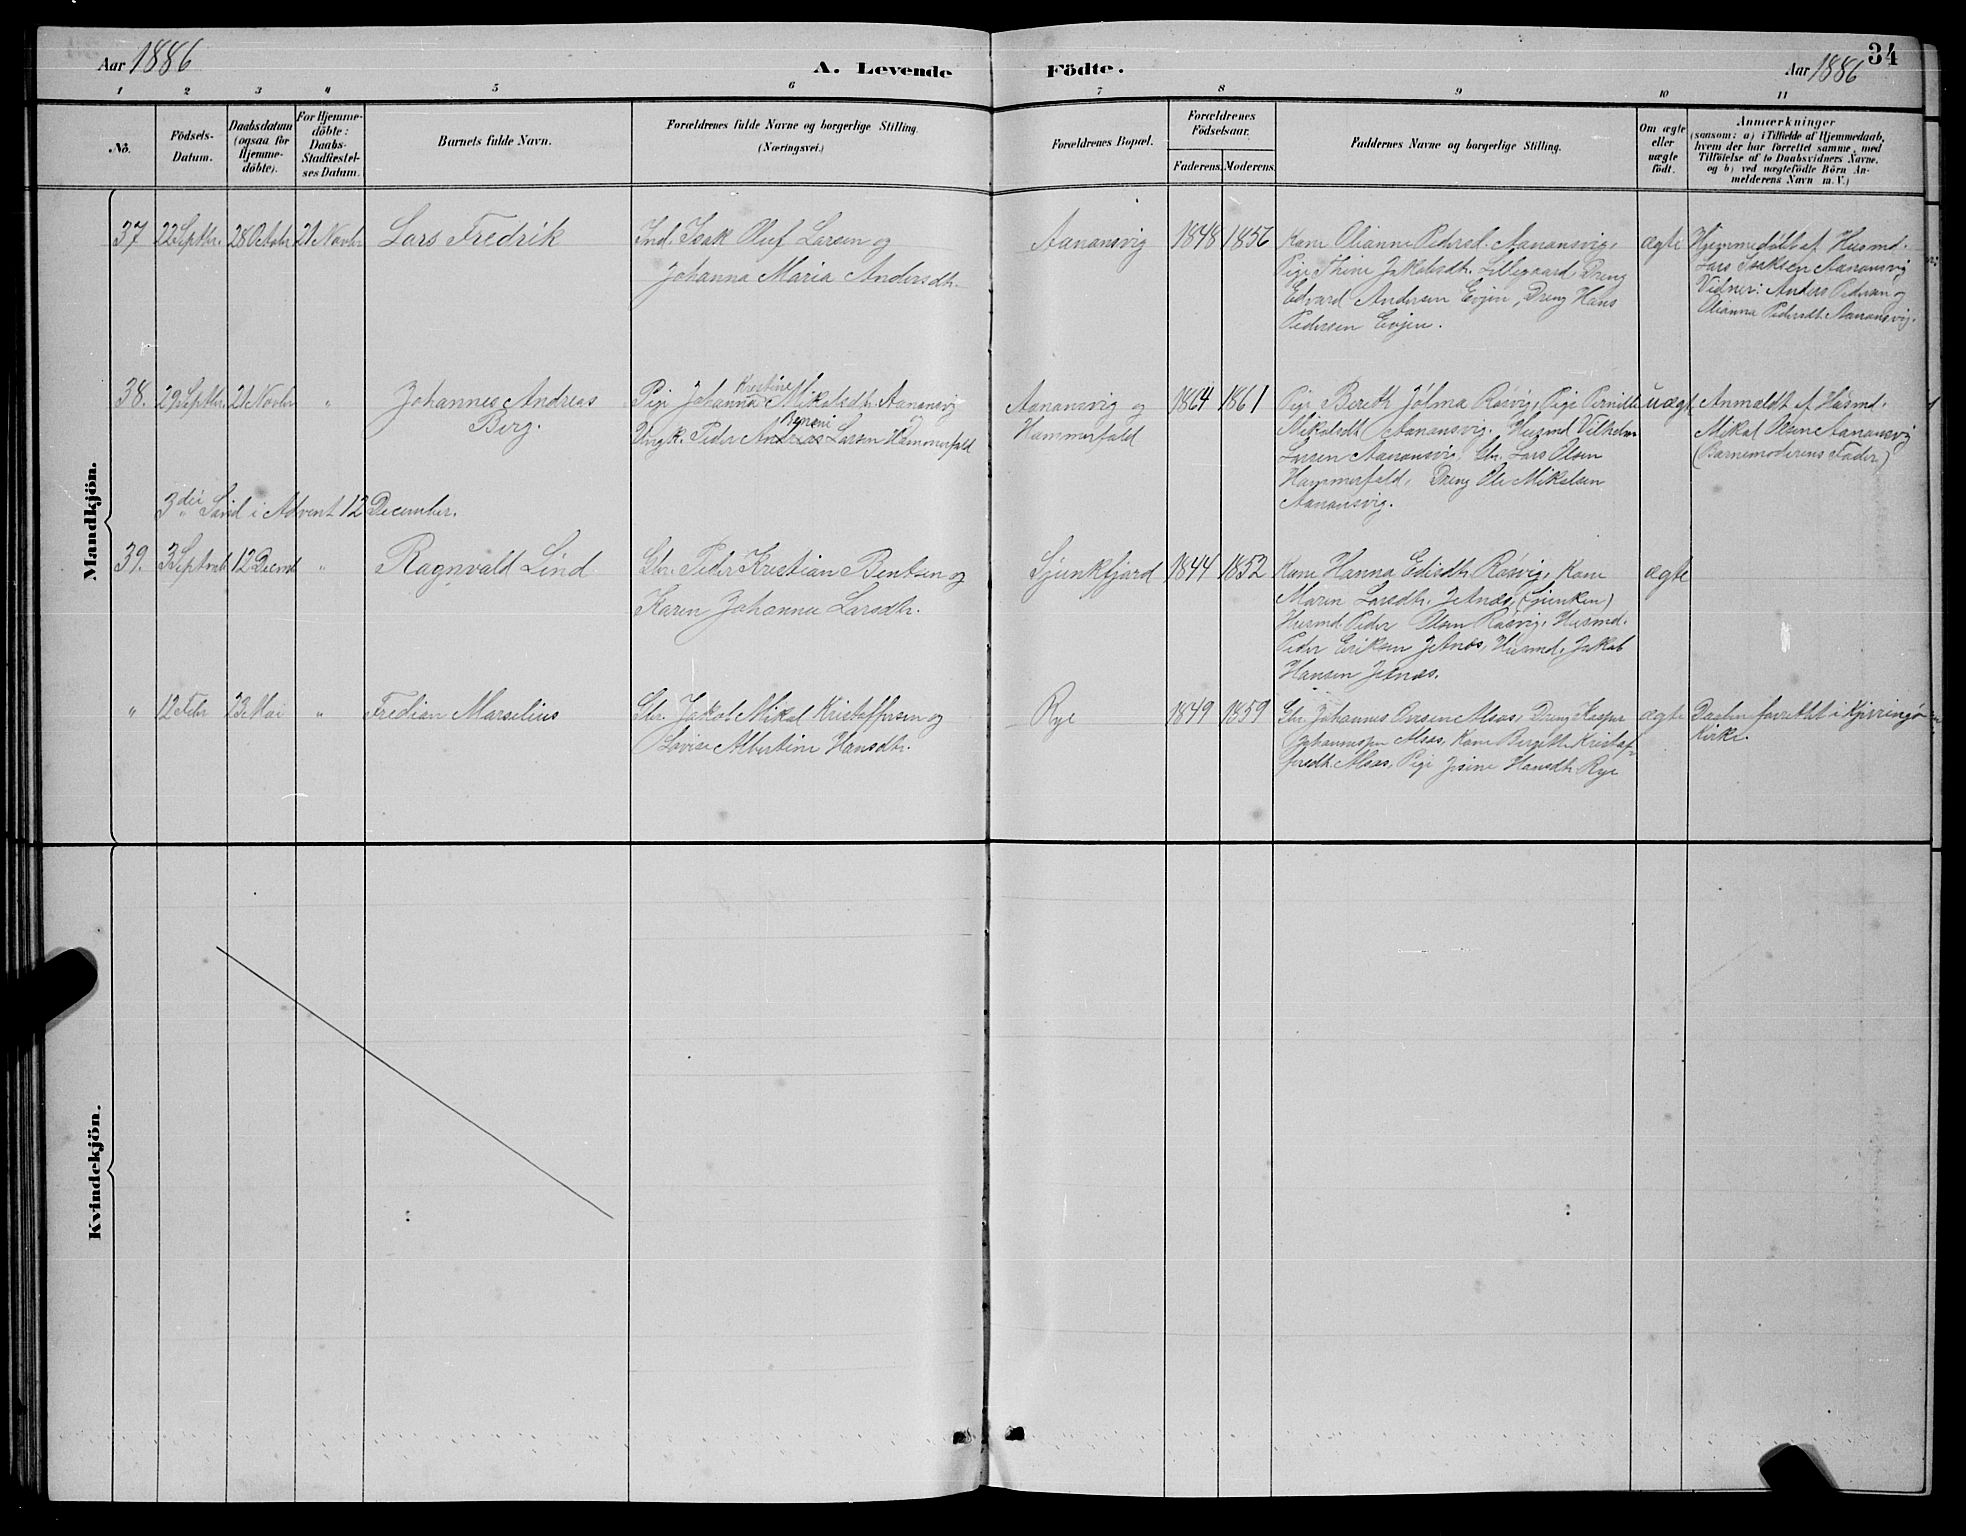 34
Aar 1886
A. Levende
Födte.
Aar 1886
1 2 3 4 5 6 7 8 9 10 11
No.
Födsels-
Datum.
Daabsdatum
(ogsaa for
Hjemme-
döbte).
For Hjemme-
döbte:
Daabs-
Stadfæstel-
ses Datum.
Barnets fulde Navn.
Forældrenes fulde Navne og borgerlige Stilling.
(Næringsvei.)
Forældrenes Bopæl.
Forældrenes
Födselsaar.
Faderens. Moderens.
Faddernes Navne og borgerlige Stilling.
Om ægte
eller
uægte
födt.
Anmærkninger
(saasom: a) i Tilfælde af Hjemmedaab,
hvem der har forrettet samme, med
Tilföielse af to Daabsvidners Navne,
og b) ved uægtefödte Börn An-
melderens Navn m. V.)
Mandkjön.
37 22 Septbr. 28 Octobr 21 Novbr Lars Fredrik
Ind. Isak Oluf Larsen og
Johanna Maria Andersdtr.
Aanansvig 1848 1856
Kone Olianna Pedersd. Aanansvig,
Pige Thine Jakobsdtr. Lillegaard, Dreng
Edvard Andersen Evjen, Dreng Hans
Pedersen Evjen.
ægte
Hjemmedöbt af Husmd.
Lars Isaksen Aanansvig
Vidner: Anders Pedersen og
Olianna Pedersdt. Aanansvig.
38. 29 Septbr. 21 Novbr " Johannes Andreas
Berg.
Pige Johanna Kristine Mikalsdtr. Aanansvig
Ungk. Peder Andreas Larsen Hammerfald
Aanansvig og
Hammerfald
1864 1861
Pige Bereth Jölma Rösvig, Pige Pernille
Mikalsdt Aanansvig, Husmd Vilhelm
Larsen Aanansvig, Gbr. Lars Olsen
Hammerfald, Dreng Ole Mikalsen
Aanansvig.
uægte
Anmeldt af Husmd.
Mikal Olsen Aanansvig
(Barnemoderens Fader)
3die Sönd i Advent 12 December.
39. 3 Septmb 12 Decmb " Ragnvald Lind
Gbr. Peder Kristian Bentsen og
Karen Johanna Larsdtr.
Sjunkfjord 1844 1852
Kone Hanna Edisdtr. Rösvig, Kone
Maren Larsdtr. Jetnæs, (Sjunken)
Husmd. Peder Olsen Rösvig, Husmd.
Peder Eriksen Jetnæs, Husmd. Jakob
Hansen Jetnæs.
ægte
" 12 Febr 23 Mai " Fredian Marselius
Gbr. Jakob Mikal Kristoffersen og
Lovise Albertine Hansdtr.
Rye 1849 1859
Gbr. Johannes Oversen Alsos, Dreng Kasper
Johannesen Alsos, Kone Bergette Kristof-
fersdt. Alsos, Pige Jesine Hansdtr Rye
ægte
Daaben forrettet i Kjerringö
Kirke.
Kvindekjön.